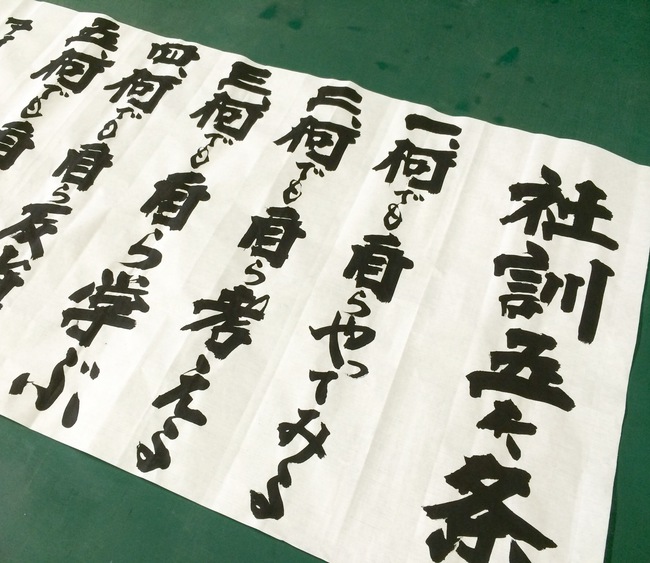 社訓五ヶ条
一、何でも自らやってみる
二、何でも自ら考える
三、何でも自ら学ぶ
四、何でも自ら反省
五、何でも自